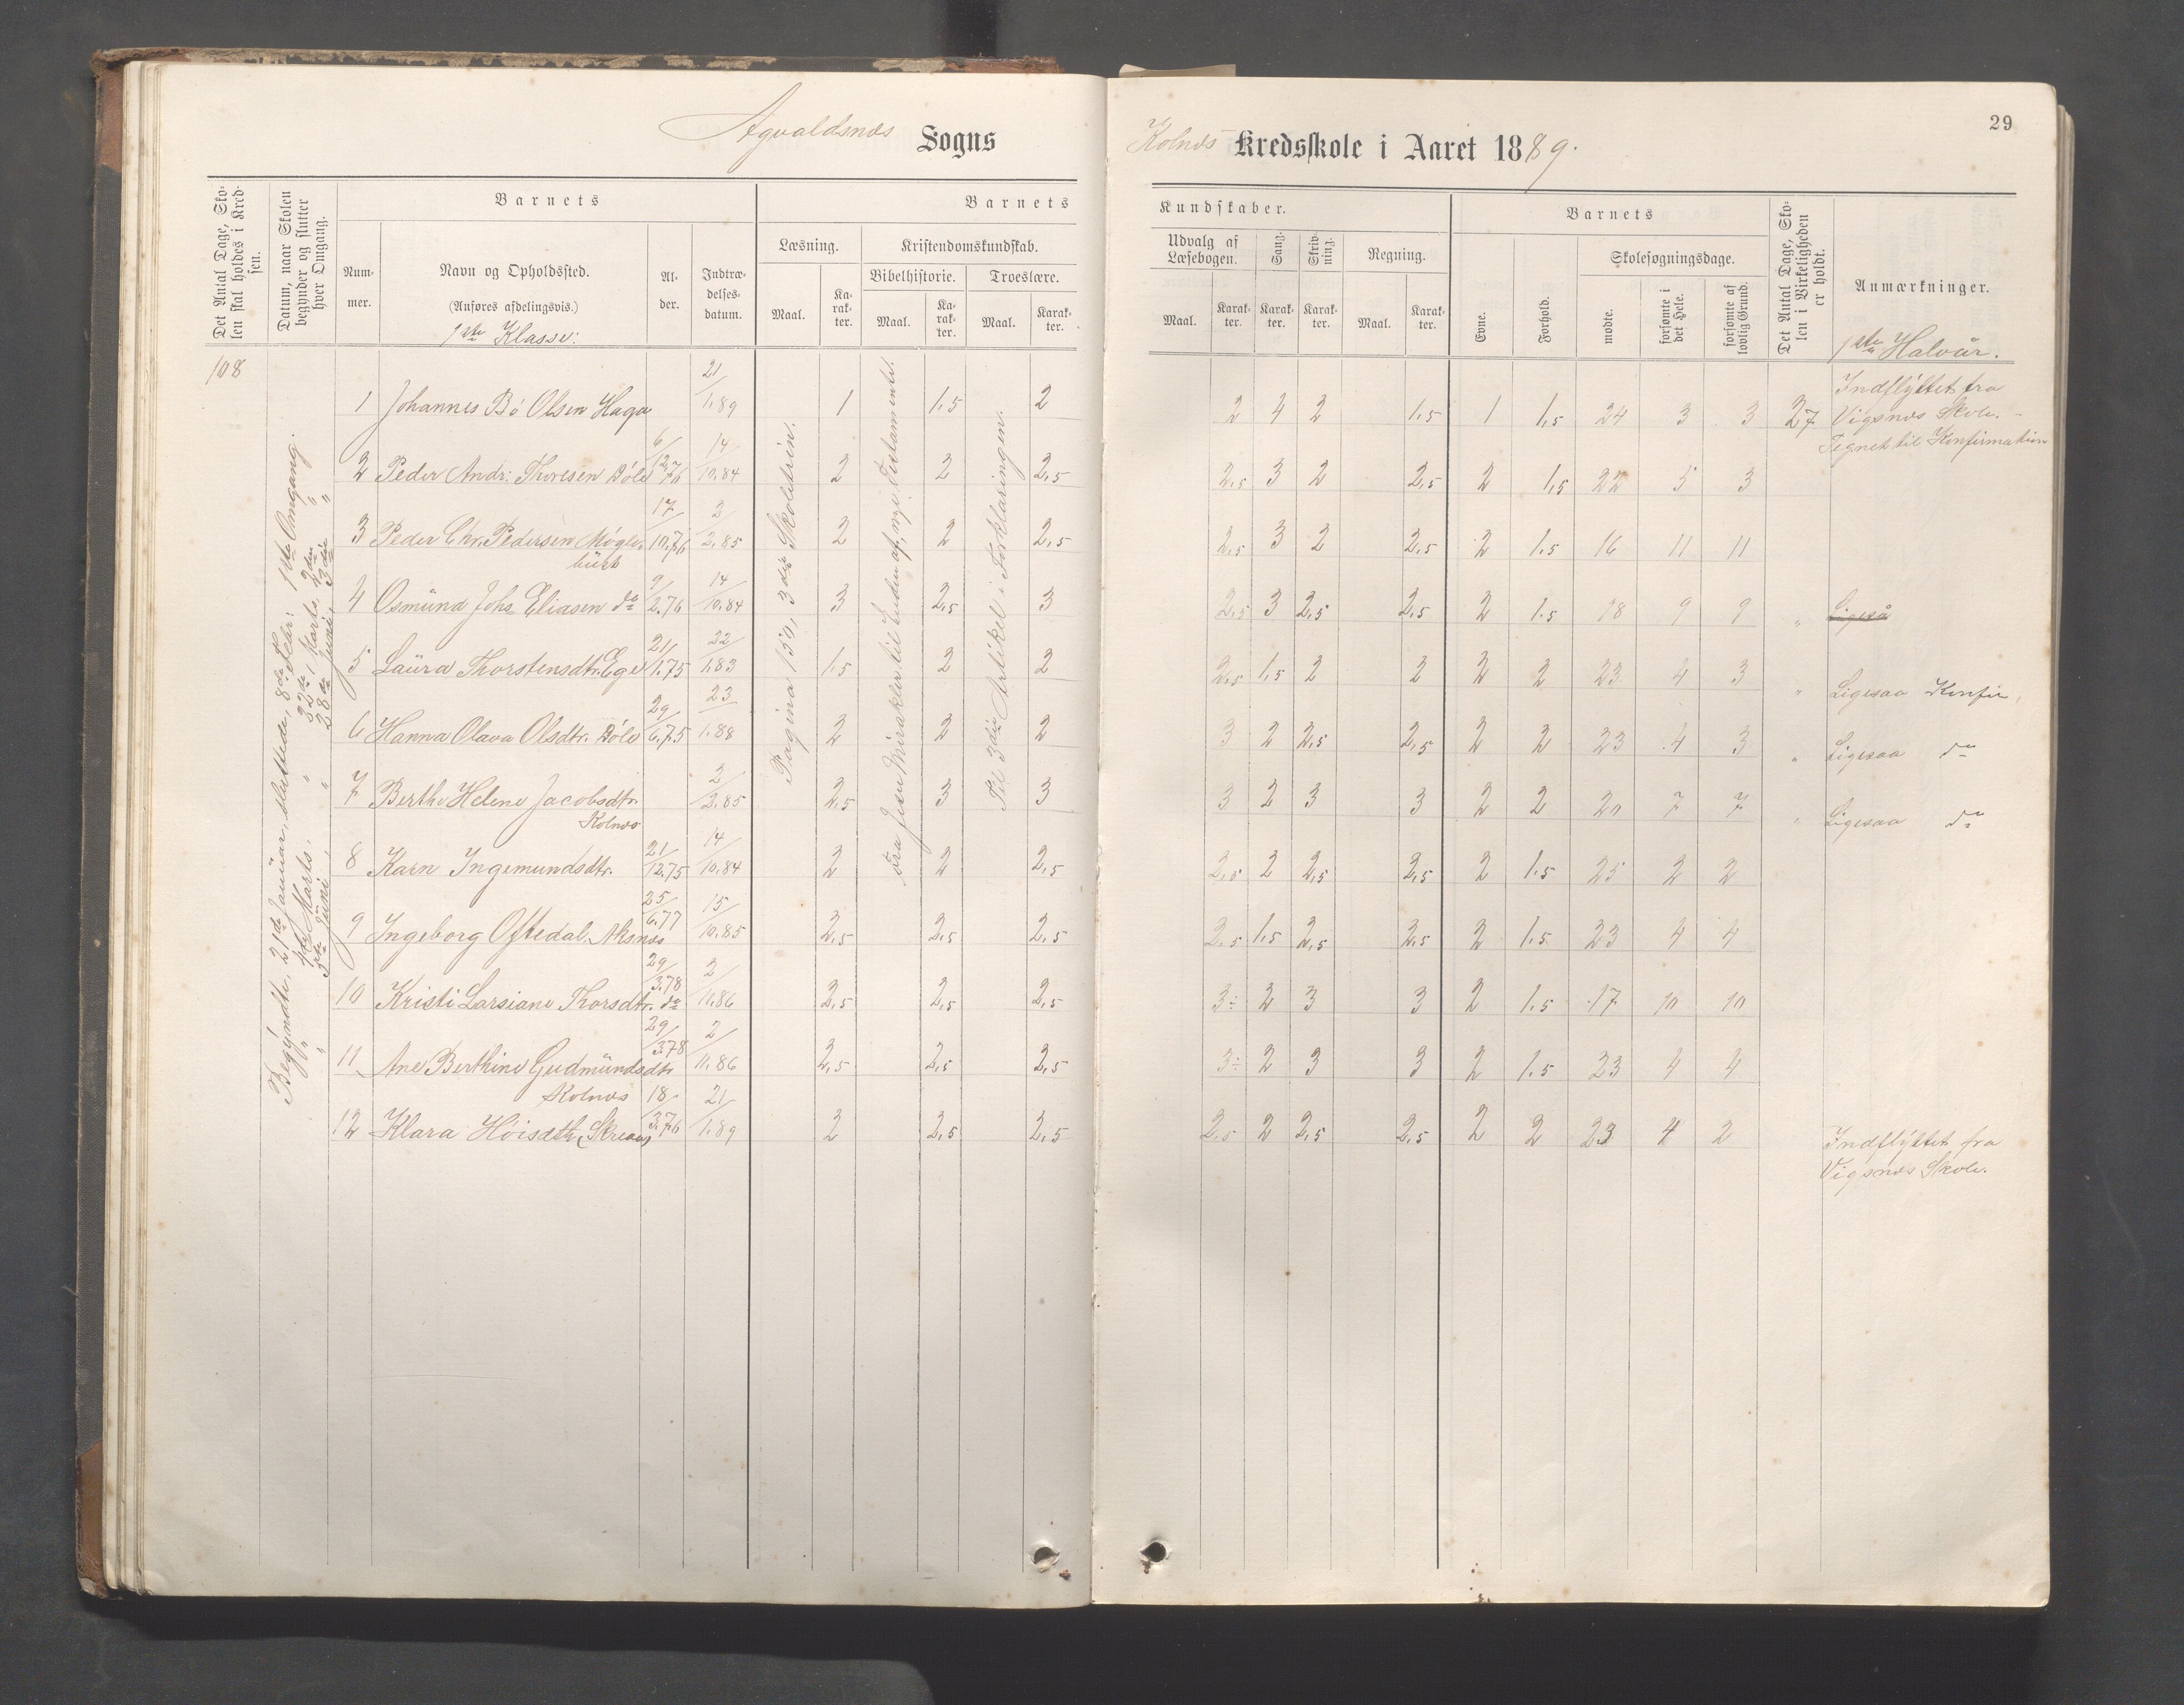 29
Sogns
Kolnes Kredsskole i Aaret 1889.
Det Antal Dage, Skolen skal holdes i Kredsen.
Datum, naar Skolen begynder og slutter hver Omgang.
Barnets
Nummer.
Navn og Opholdssted.
(Anføres afdelingsvis.)
1ste Klasse:
Alder.
Indtrædelsesdatum.
Barnets
Læsning.
Maal.
Karakter.
Kristendomskundskab.
Bibelhistorie.
Maal.
Karakter.
Troeslære.
Maal.
Karakter.
Kundskaber.
Udvalg af Læsebogen.
Maal.
Karakter.
Sang.
Karakter.
Skrivning.
Karakter.
Regning.
Maal.
Karakter.
Barnets
Evne.
Forhold.
Skolesøgningsdage.
mødte.
forsømte i det Hele.
forsømte af lovlig Grund.
Det Antal Dage, Skolen i Virkeligheden er holdt.
Anmærkninger.
1ste Halvår.
108
Begyndte, 21de Januar, sluttede, 8de Febr: 1ste Omgang.
" 4de Marts. " 22de Marts, 2den "
" 5te Juni, " 28de Juni, 3die "
Pagina 150, 3die Skoletrin.
Fra Jesu Mirakler til Enden af nye Testamente.
Til 3die Artikel i Forklaringen.
1 Johannes Bö Olsen Haga 21/1.89 1 1,5 2 2 4 2 1,5 1 1,5 24 3 3 27 Indflyttet fra Vigsnes Skole.
Tegnet til Konfirmation
2 Peder Andr: Thoresen Døle 6/12.76 14/10.84 2 2 2,5 2,5 3 2 2,5 2 1,5 22 5 3
3 Peder Chr. Pedersen 17/10.76 3/2.85 2 2 2,5 2,5 3 2 2,5 2 1,5 16 11 11
4 Osmünd Johs Eliasen do 9/2.76 14/10.84 3 2,5 3 2,5 3 2,5 2,5 2 1.5 18 9 9 " Ligeså
5 Laüra Thorstensdtr. Ege 21/1.75 22/1.83 1.5 2 2 2,5 1,5 2 2 2 2 23 4 3 " Ligesaa Konfir,
6 Hanna Olava Olsdtr. Døle 29/6.75 23/1.88 2 2 2 3 2 2,5 2,5 2 2 23 4 3 " Ligesaa do
7 Berthe Helene Jacobsdtr Kolnes 2/2.85 2,5 3 3 3 2 3 3 2 2 20 7 7 " Ligesaa do
8 Karn Ingemundsdtr. 21/12.75 14/10.84 2 2 2,5 2,5 2 2,5 2,5 2 1.5 25 2 2
9 Ingeborg Oftedal. Aksnes 25/6.77 15/10.85 2,5 2,5 2,5 2,5 1,5 2,5 2,5 2 1.5 23 4 4
10 Kristi Larsiane Thorsdtr. do 29/3.78 2/11.86 2,5 2,5 2,5 3÷ 2 3 3 2 1.5 17 10 10
11 Ane Berthine Gudmündsdtr Kolnes 29/3.78 2/11.86 2,5 2,5 2,5 3÷ 2 3 3 2 1.5 23 4 4
12 Klara Høisdtr. 18/3.76 21/1.89 2 2,5 2,5 2,5 2 2,5 2,5 2 2 23 4 2 Indflyttet fra Vigsnes Skole.